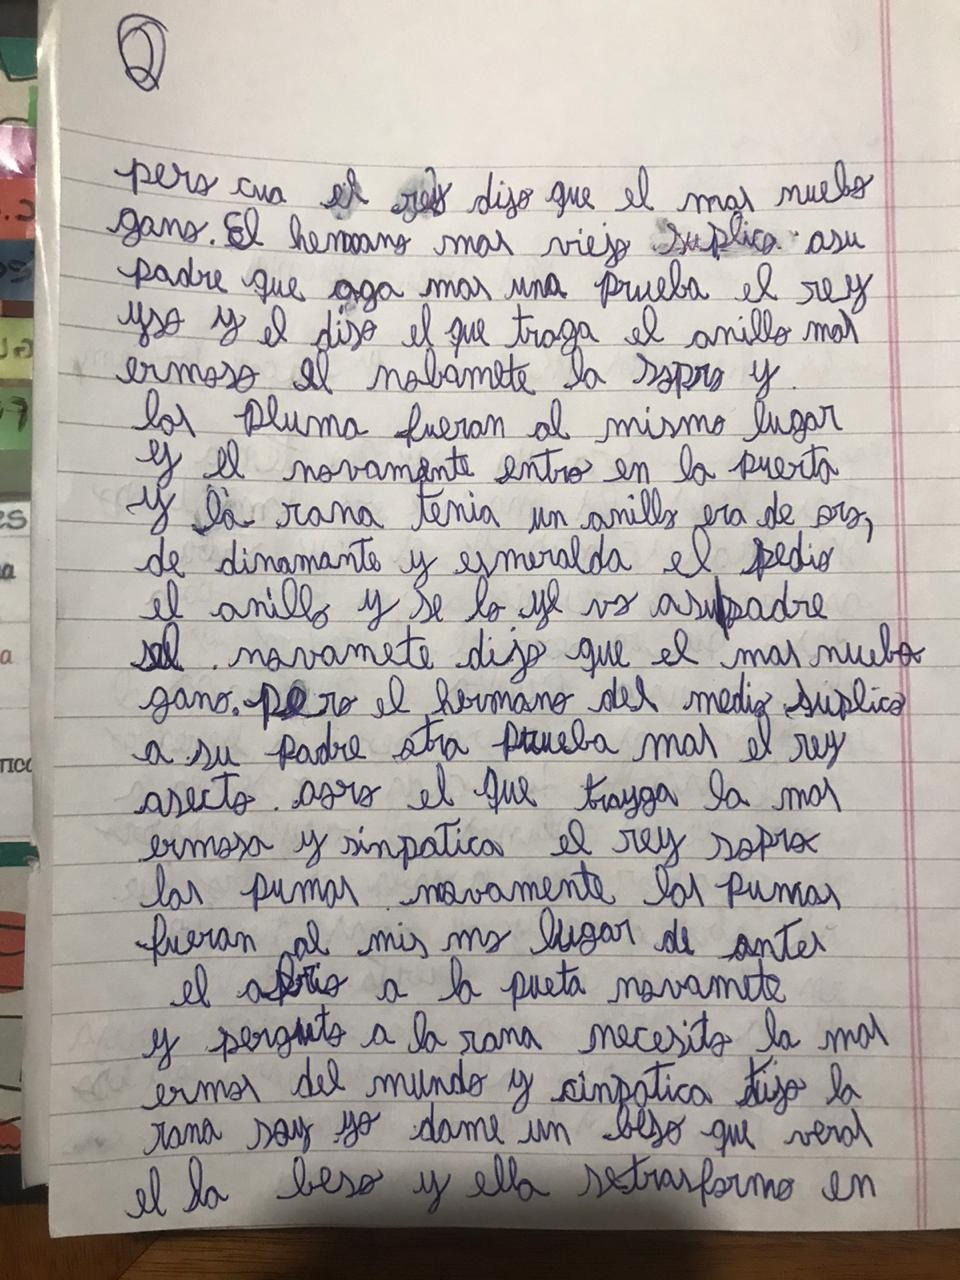 2
pero cua el rey dijo que el mas nuebo
gano. El hermano mas viejo suplico asu
padre que aga mas una prueba el rey
yso y el dijo el que traga el anillo mas
ermoso el nobamete la sopro y
las pluma fueran al mismo lugar
y el novamente entro en la puerta
y la rana tenia un anillo era de oro,
de dinamante y esmeralda el pedio
el anillo y se lo yevo asu padre
el novamete dijo que el mas nuebo
gano. pero el hermano del medio suplico
a su padre otra prueba mas el rey
asecto aoro el que trayga la mas
ermosa y sinpatica el rey sopro
las pumas novamente las pumas
fueran al mismo lugar de antes
el abrio a la pueta novamete
y pergnto a la rana necesito la mas
ermos del mundo y sinpatica dijo la
rana soy yo dame un beso que veras
el la beso y ella setrasformo en
es
a
a